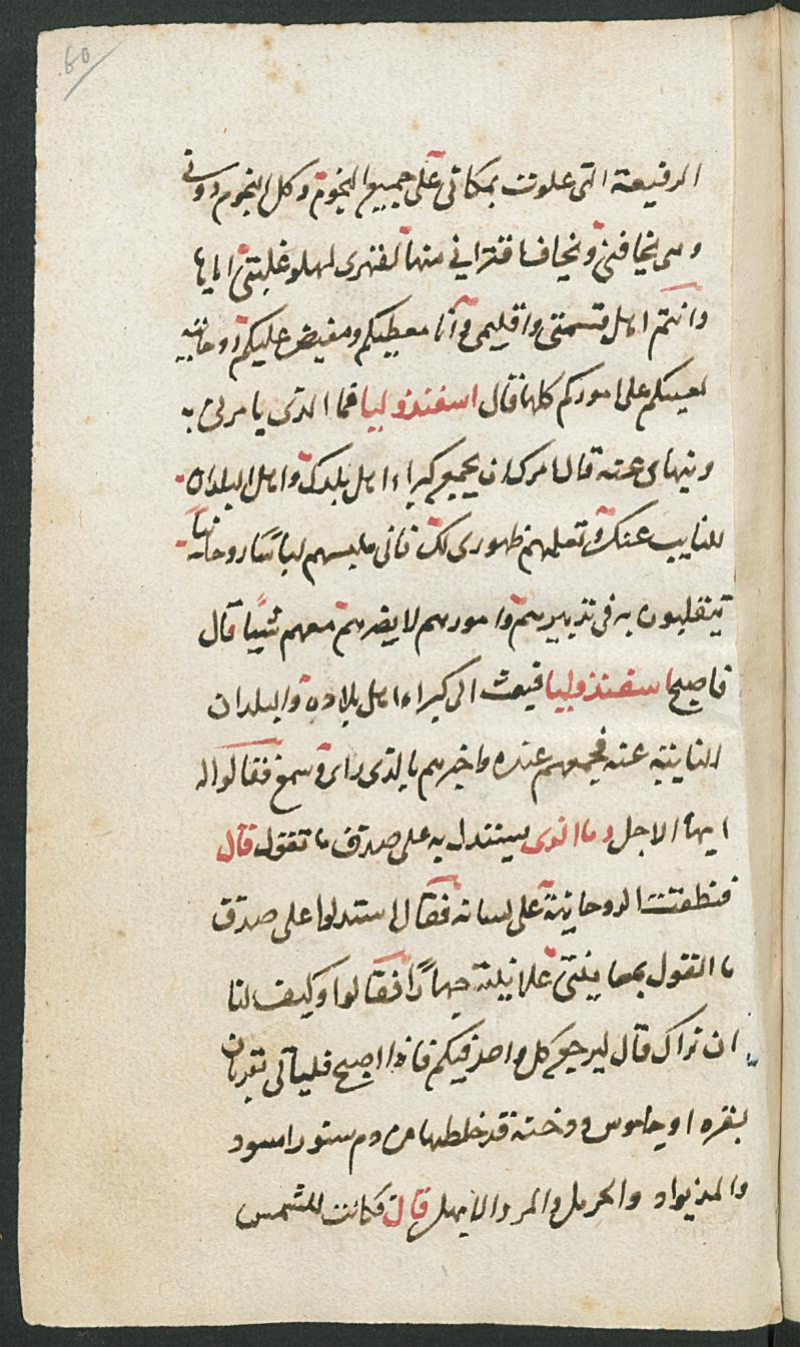 60
الرفيعة التى علوت بمكانى على جميع النجوم وكل النجوم دونى
ومن يخافنى ويخاف اقترانى منها لقهرى لها وغلبتى اياها
وانتم اهل قسمتى واقليمى وانا معطيكم ومفيض عليكم روحانيه
لعينكم على اموركم كلها فقال اسفندوليا فما الذى يامرنى به
وينهانى عنه قال امرك ان يجمع كبراء اهل بلدك واهل البلدان
للنايب عنك وتعلمهم ظهورى لك فانى ملبسهم لباسا روحانيا
يتقلبون به فى تدبيرهم وامورهم لا يضرهم معهم شيئا قال
فاصبح اسفندوليا فبعث الى كبراء اهل بلاده والبلدان
النايبة عنه فجمعهم عنده واخبرهم بالذى راى وسمع فقالوا له
ايها الاجل وما الذى يستدل به على صدق ما تقول قال
فنطقت الروحانية على لسانه فقال استدلوا على صدق
ما اقول بمعاينتى علانية جهارًا فقالوا وكيف لنا
ان نراك قال ليرجع كل واحد فيكم فاذا اصبح فلياتى بقربان
بقره او جاموس ودخنة قد خلطها من دم سنور اسود
والحرمل والمر والابهل قال فكانت للشمس